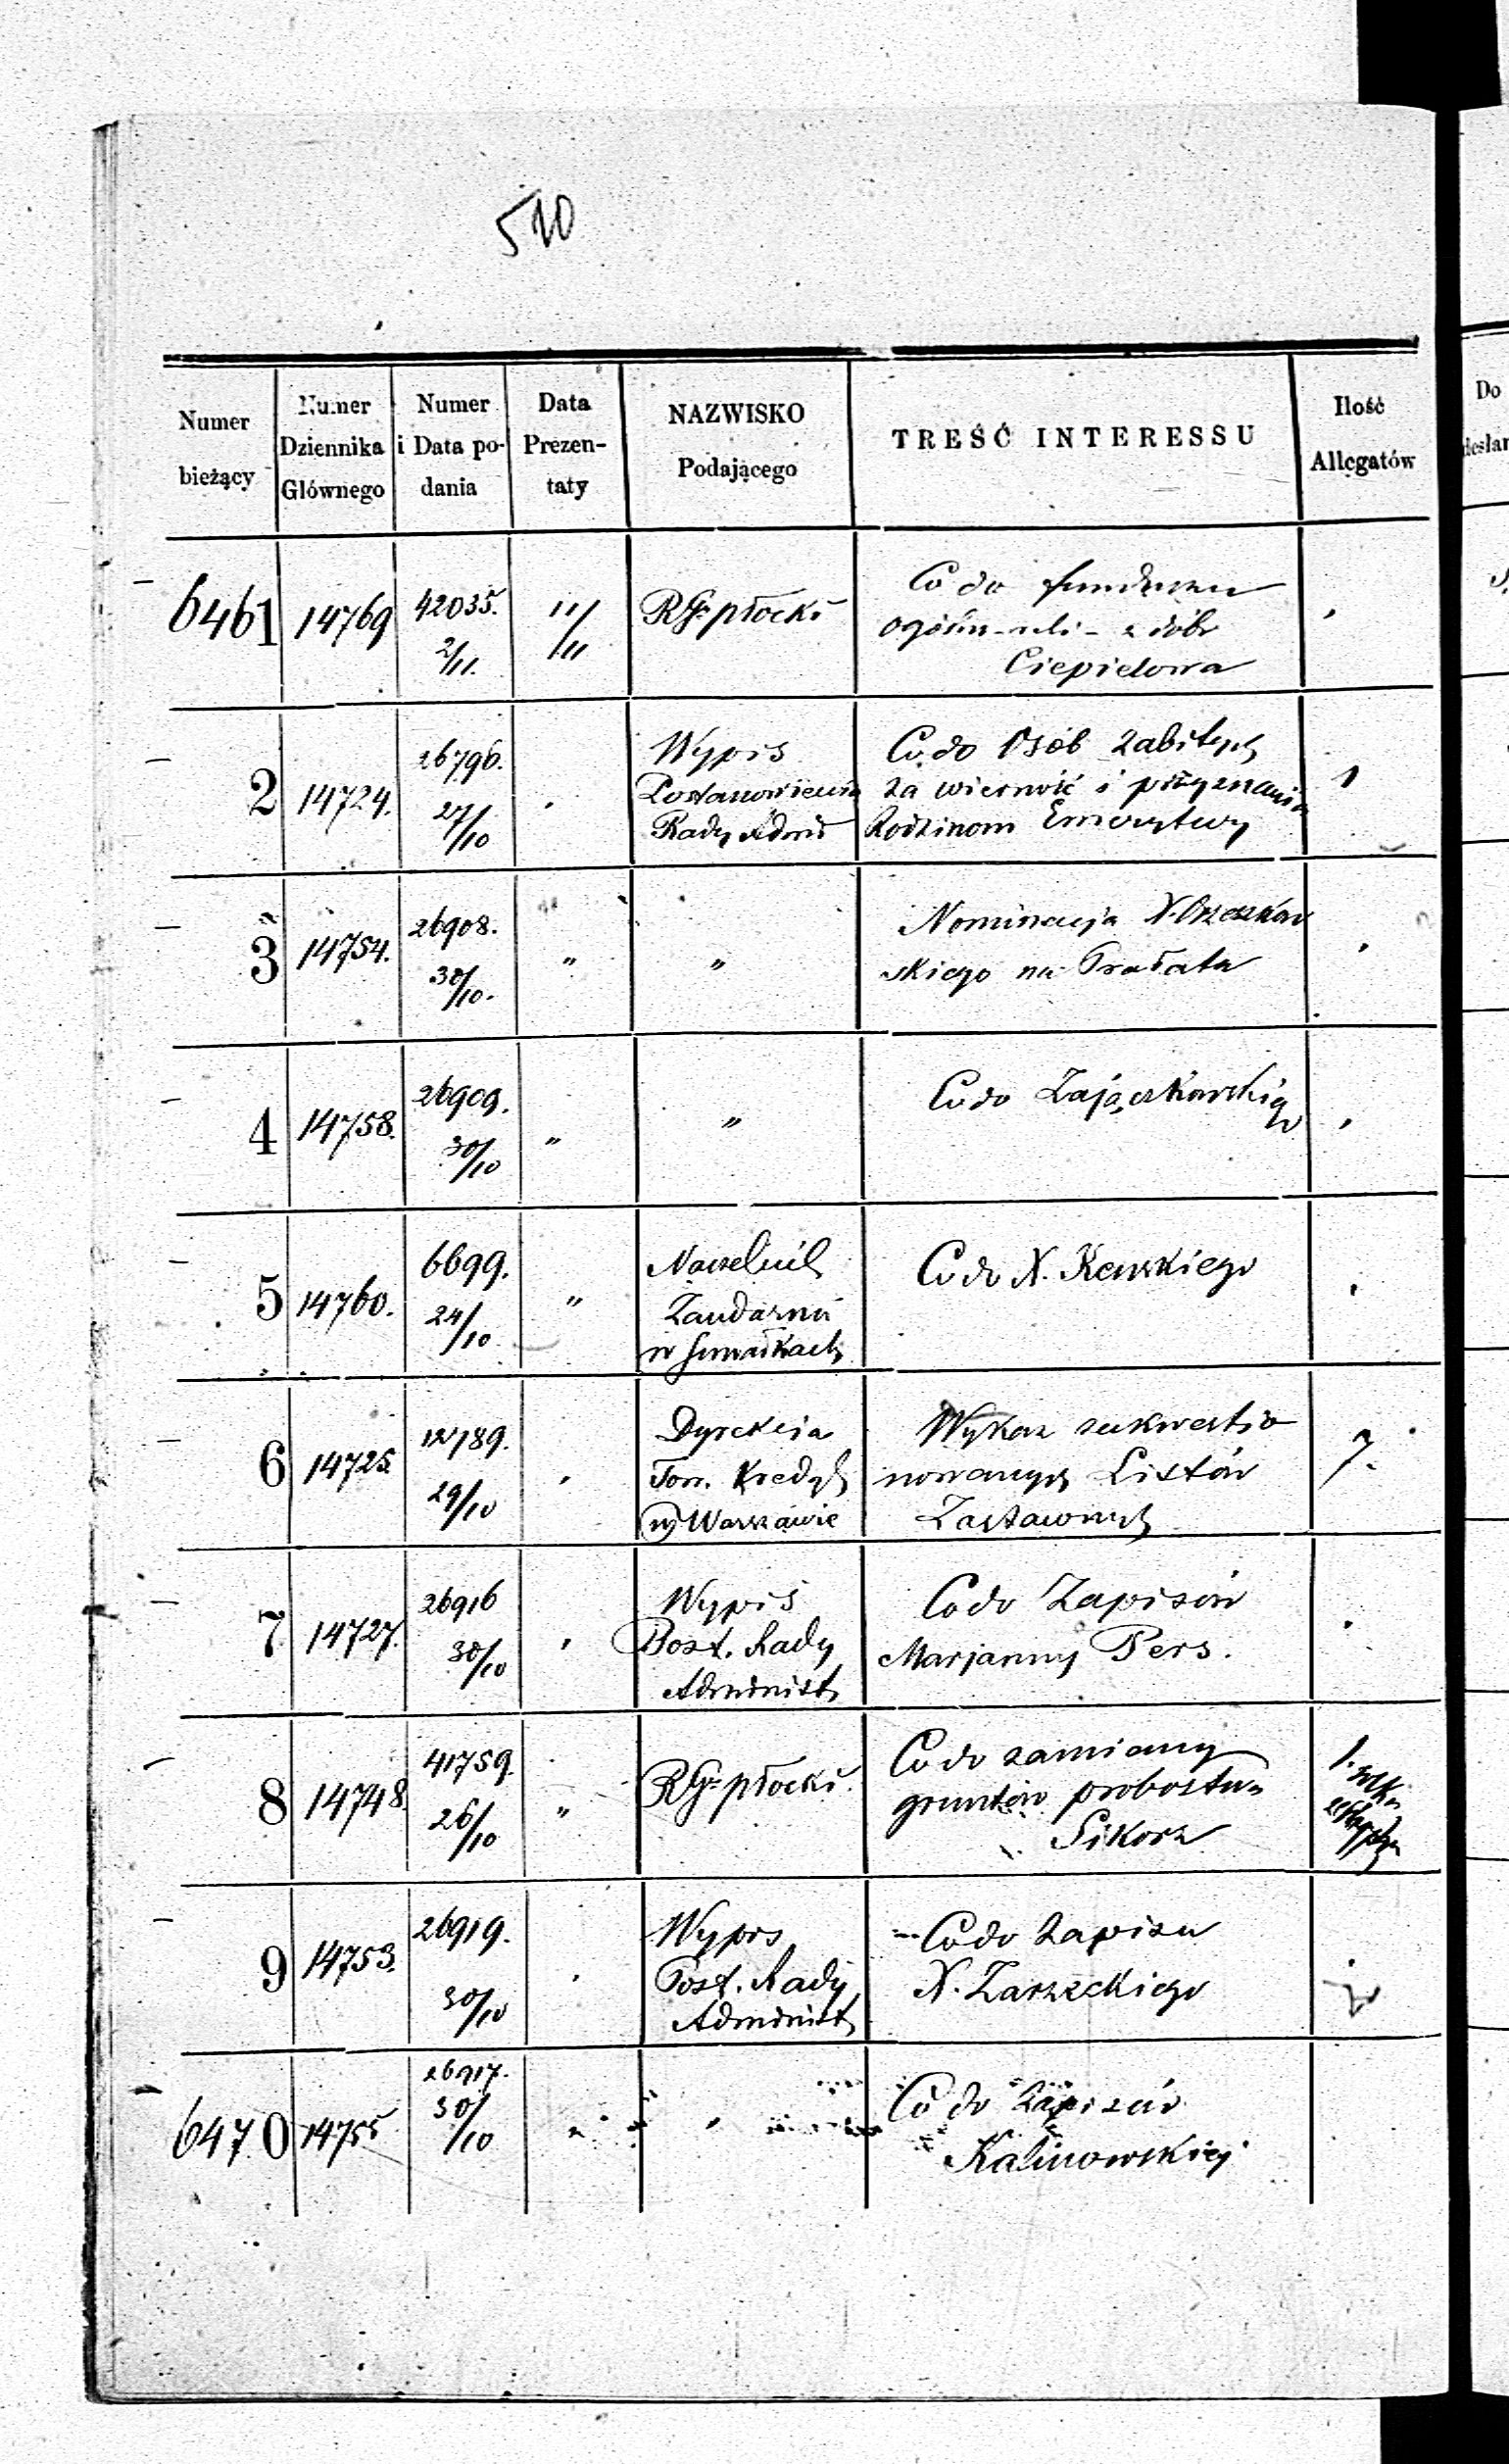 510
Numer bieżący | Numer Dziennika Głównego | Numer i Data podania | Data Prezentaty | NAZWISKO Podającego | TREŚĆ INTERESSU | Ilość Allegatów
6461 14769 42035. 2/11. 11/111 RGr płocki
Co do funduszu
z dóbr
Ciepielowa
2 14724. 26796. 27/10
Wypis
Postanowienia
Rady Adm
Co do Osób zabitych
za wierność i przyznania
Rodzinom Emerytury
1
3 14754. 26908. 30/10. " "
Nominacya X. Orzeszkow
skiego na Prałata
4 14758. 26909. 30/10 " "
Co do Zajączkowskiego
5 14760. 6699. 24/10 "
Naczelnik
Żandarmi
w Suwałkach
Co do X. Kewskiego
6 14725. 12789. 29/10
Dyrekcia
Tow. Kredyt
w Warszawie
Wykaz zakwestio
nowanych Listów
Zastawnych
7.
7 14727. 26916 30/10
Wypis
Post. Rady
Administ
Co do Zapisów
Marjanny Pers.
8 14748. 41759. 26/10 "
RGr płocki.
Co do zamiany
gruntów probostwa
Sikorz
1.
9 14753. 26919. 30/10
Wypis
Post. Rady
Administ
Co do zapisu
X. Zarzeckiego
6470 14755 26917. 30/10 "
Co do Zapisów
Kalinowskiej
Do